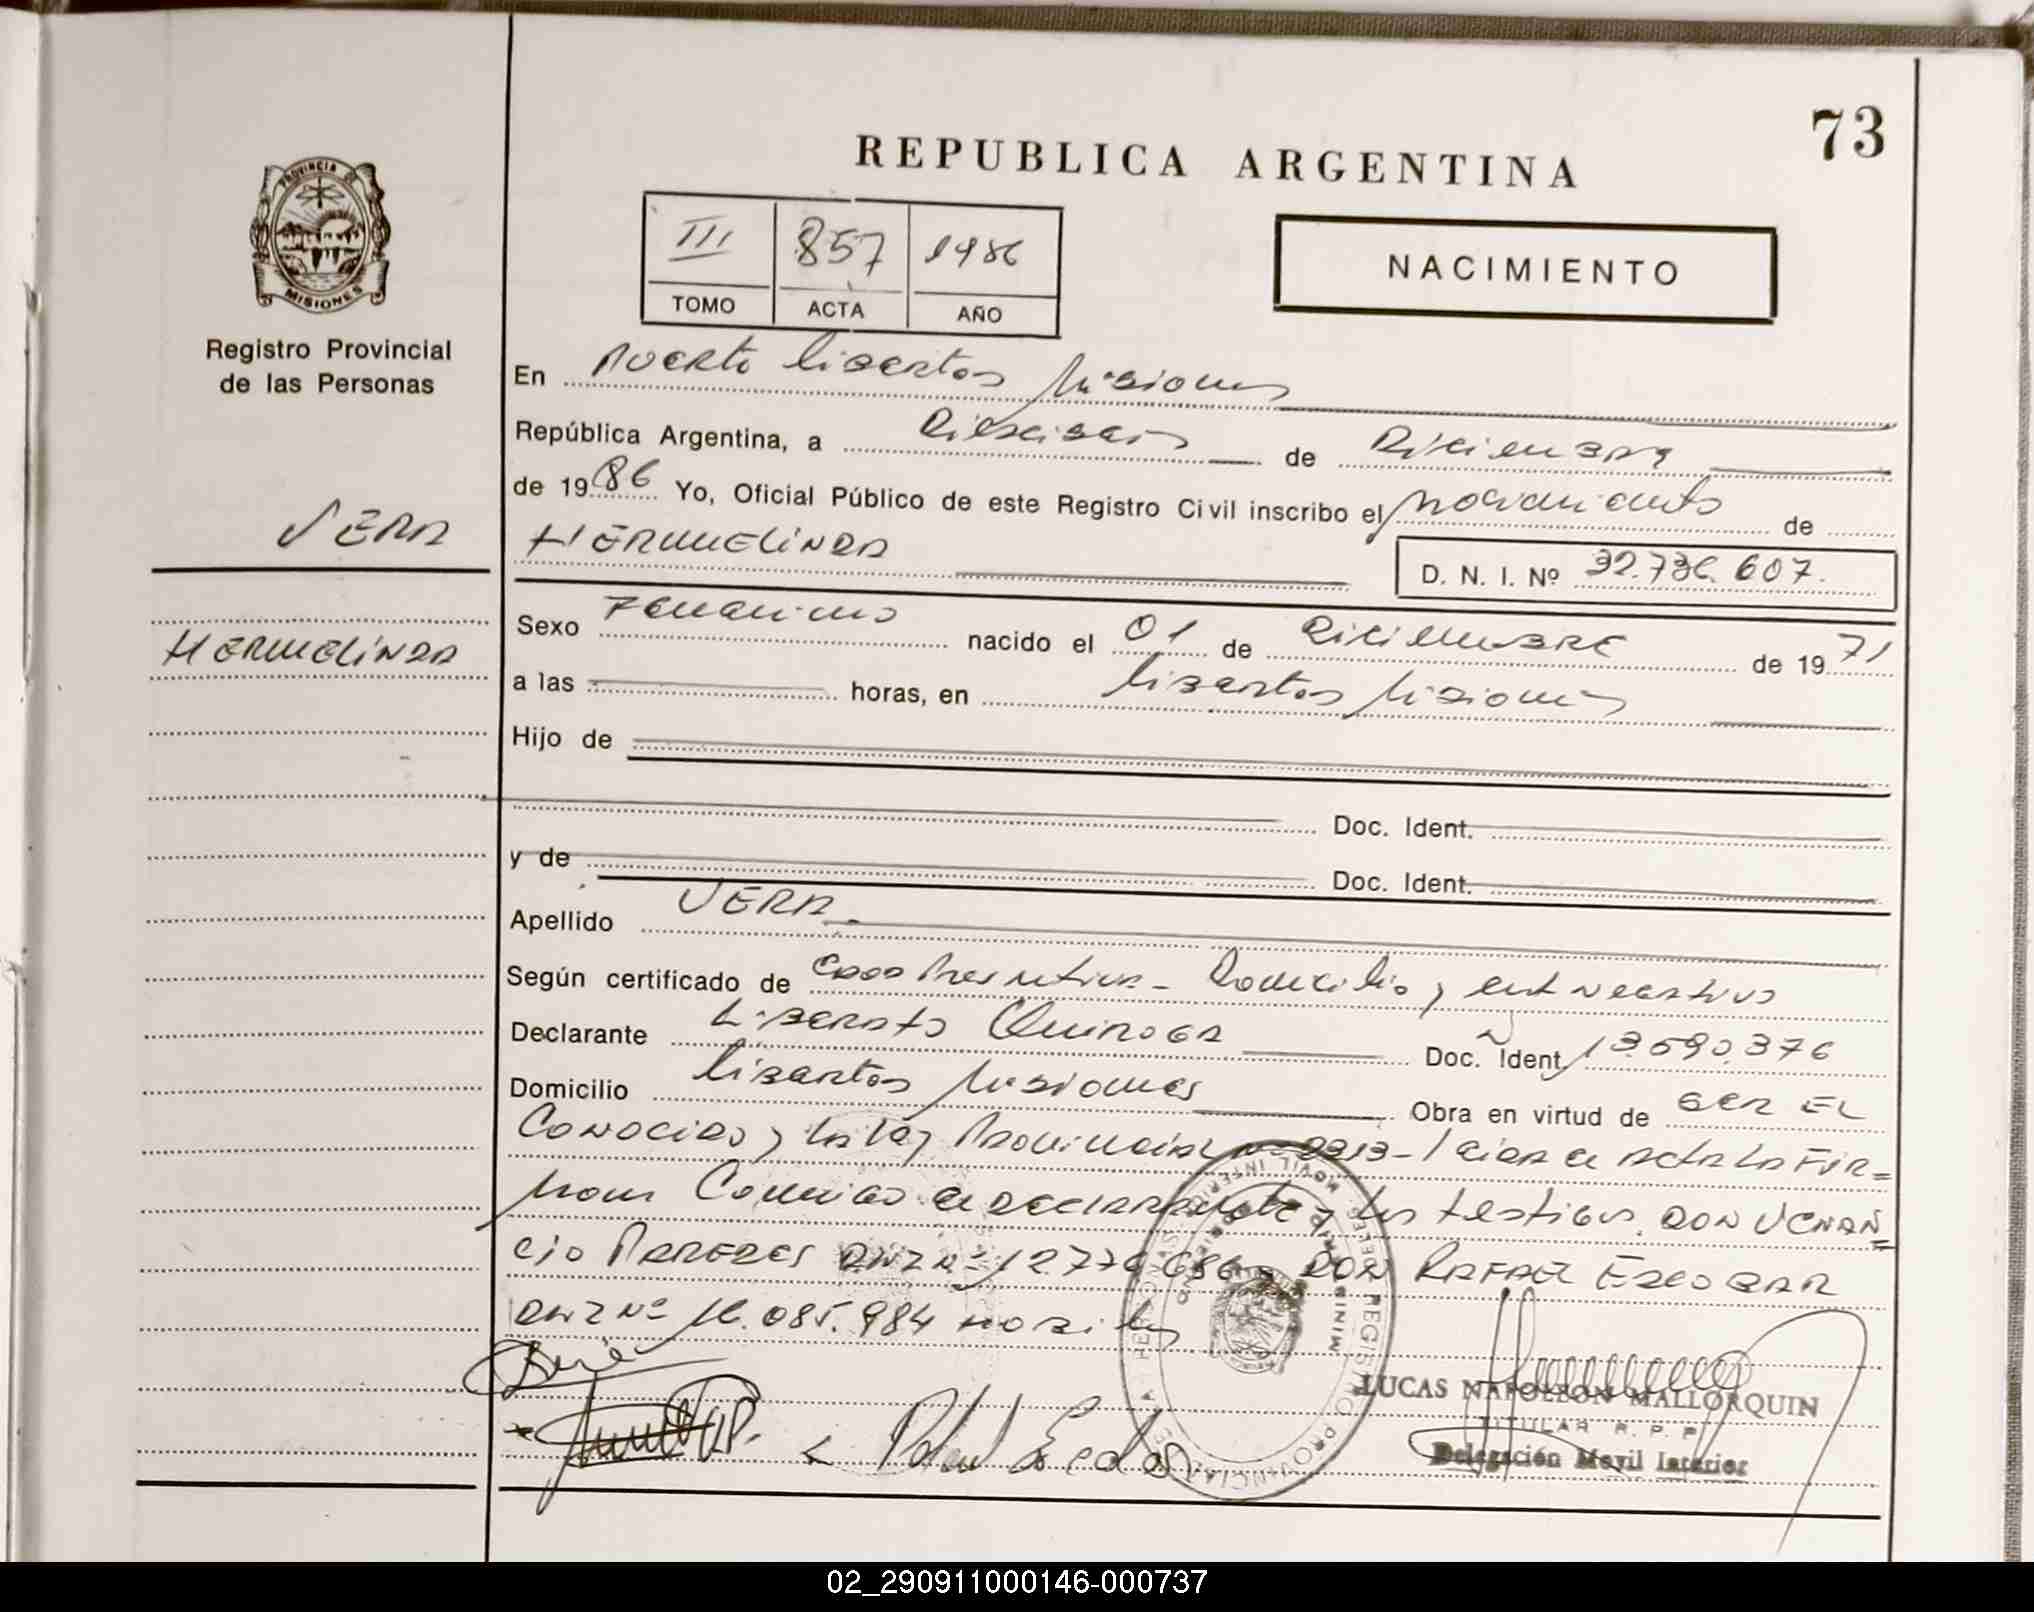 73
REPUBLICA ARGENTINA
PROVINCIA DE
MISIONES
Registro Provincial
de las Personas
III 857 1986
TOMO ACTA AÑO
NACIMIENTO
En Puerto Libertad Misiones
República Argentina, a Dieciseis de Diciembre
de 1986 Yo, Oficial Público de este Registro Civil inscribo el nacimiento de
VERA
HERMELINDA
D. N. I. Nº 32.736.607.
HERMELINDA
Sexo Femenino nacido el 01 de Diciembre de 1971
a las horas, en Libertad Misiones
Hijo de
Doc. Ident.
y de Doc. Ident.
Apellido VERA
Según certificado de Edad Domicilio y Cert Negativo
Declarante Liberato Quiroga Doc. Ident. 13.690.376
Domicilio Libertad Misiones Obra en virtud de SER EL
Conocido y la ley Provincial Nº Leida el Acta la Fir=
man Conmigo el declarante y los testigos DON VENAN=
CIO PAREDES DNI Nº 12776686 y DON RAFAEL ESCOBAR
DNI Nº 16.085.984
LUCAS NAPOLEON MALLORQUIN
TITULAR R. P. P.
Delegación Movil Interior
02_290911000146-000737